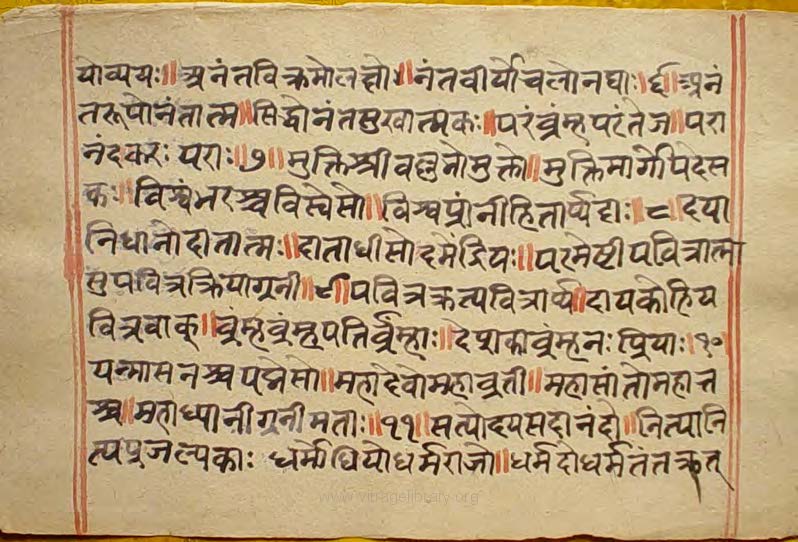 योव्ययः॥ अनंतविक्रमोलक्षो॥नंतवीर्योचलोनघाः॥६॥अनं
तरूपोनंतात्म॥सिद्धोनंतसुखात्मकः॥परंब्रंम्हपरंतेज॥परा
नंदकरः पराः॥७॥मुक्तिश्रीवल्लभोमुक्तो॥मुक्तिमार्गोपदेस
कः॥विश्वंभरश्चविस्वेसो॥विश्वप्रांनीहितार्थदाः॥८॥दया
निधानोदातात्मः॥दाताधीसोदमेंद्रियः॥परमेष्टीपवित्रात्मा
सुपवित्रक्रियागुनी॥९॥पवित्रक्रत्पवित्रार्थ॥दायकोहिय
वित्रवाक्॥ब्रंम्हब्रंम्हपतिर्ब्रम्हाः॥देशकाब्रंम्हनः प्रियाः॥१०
पद्मासनश्चपद्मेसो॥महादेवोमहाव्रती॥महासांतोमहात
श्च॥महाध्यानीगुनीमताः॥११॥सत्योदयसदानंदो॥नित्यानि
त्यप्रजल्पकाः धर्माधियोधर्मराजो॥धर्मदोधर्मतंतक्रत्
www.vitragelibrary.org